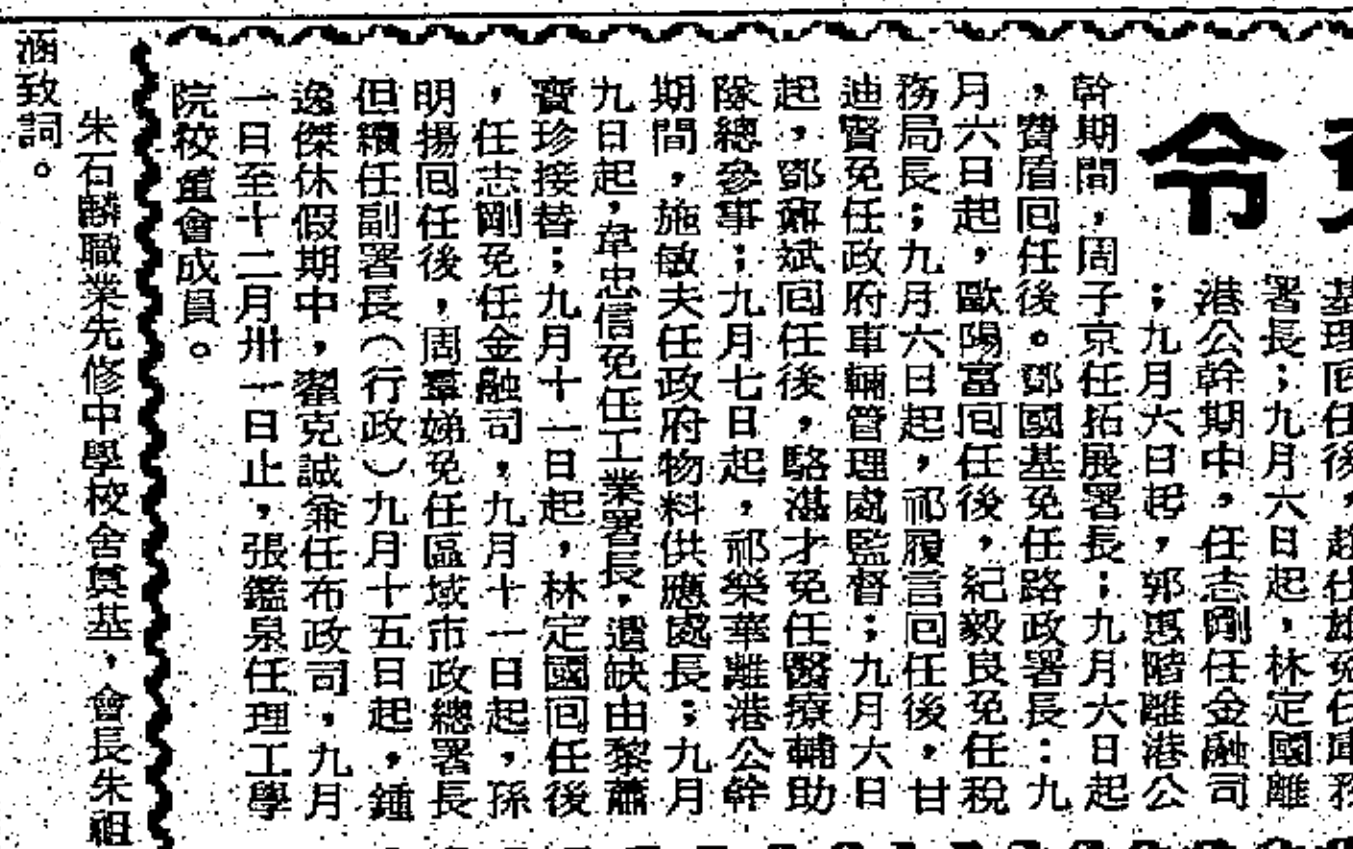 令
基理回任後，趙仕雄免任庫務
署長；九月六日起，林定國離
港公幹期中，任志剛任金融司
；九月六日起，郭惠階離港公
幹期間，周子京任拓展署長；九月六日起
，費盾回任後。鄧國基免任路政署長：九
月六日起，歐陽富回任後，紀毅良免任税
務局長；九月六日起，祁履言回任後，甘
迪賓免任政府車輛管理處監督；九月六日
起，鄧炳斌回任後，駱湛才免任醫療輔助
隊總參事；九月七日起，祁樂華離港公幹
期間，施敏夫任政府物料供應處長；九月
九日起，韋忠信免任工業署長，遺缺由黎蕭
寶珍接替；九月十一日起，林定國回任後
，任志剛免任金融司，九月十一日起，孫
明揚回任後，周羣娣免任區域市政總署長
但續任副署長（行政）九月十五日起，鍾
逸傑休假期中，翟克誠兼任布政司，九月
一日至十二月卅一日止，張鑑泉任理工學
院校董會成員。
朱石麟職業先修中學校舍奠基，會長朱祖
涵致詞。